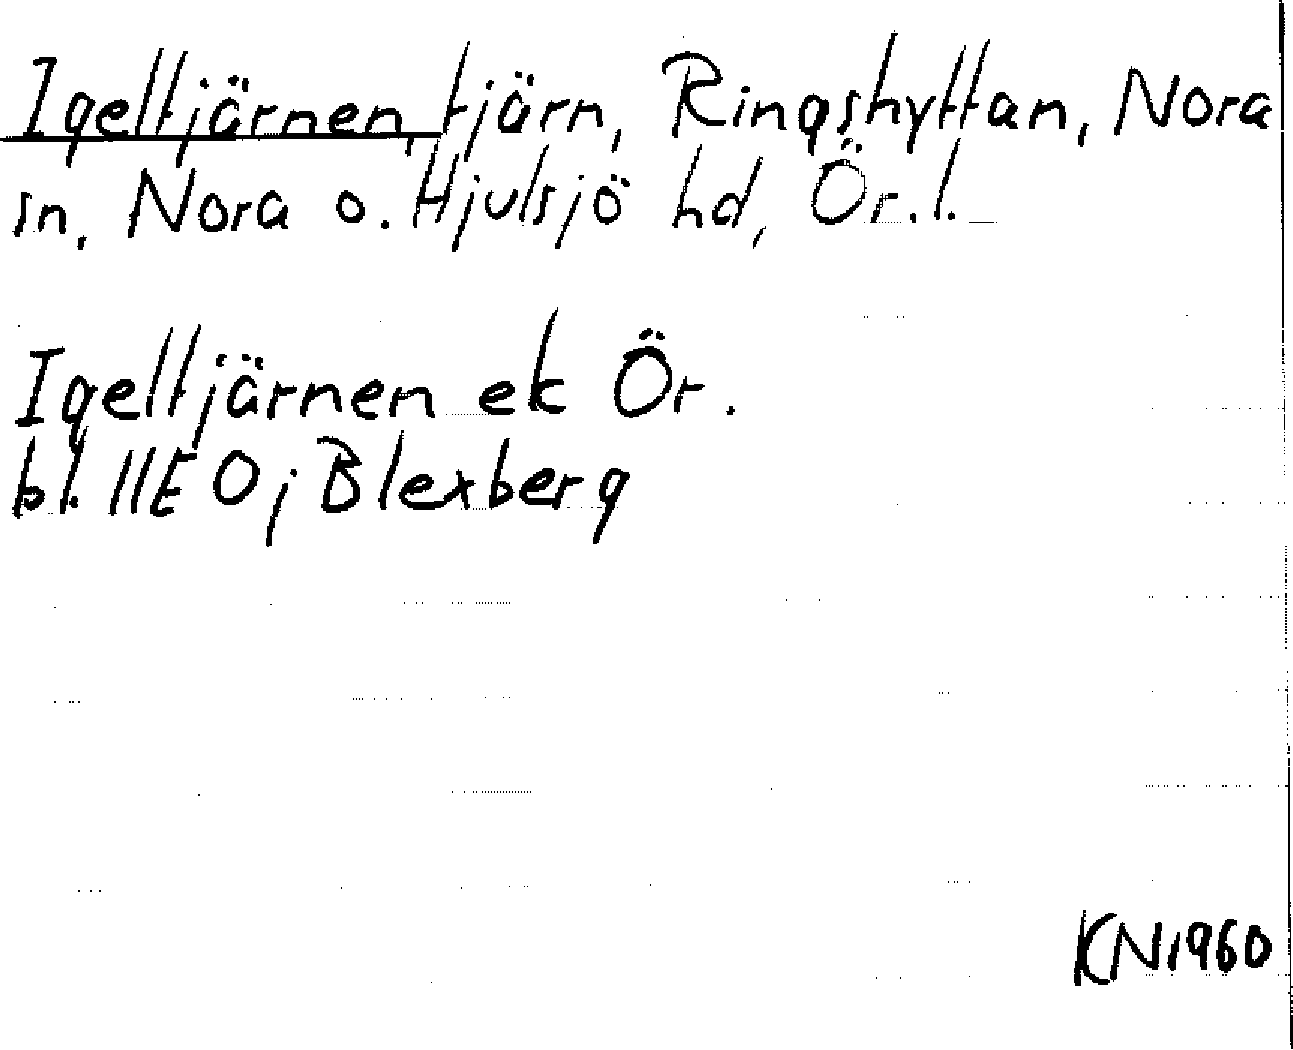 Igeltjärnen, tjärn, Ringshyttan, Nora
sn, Nora o. Hjulsjö hd, Ör. l.
Igeltjärnen ek Ör.
bl. 11E 0j Blexberg
KN 1960